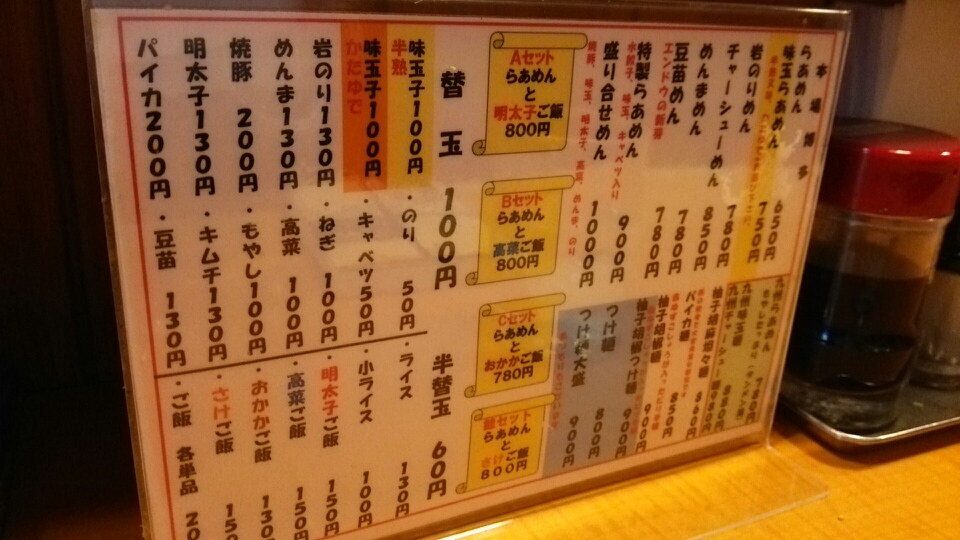 本場博多
らあめん 650円
味玉らあめん 750円
岩のりめん 780円
チャーシューめん 850円
めんまめん 780円
豆苗めん 780円
エンドウの新芽
特製らあめん 900円
水餃子、味玉、キャベツ入り
盛り合せめん 1000円
焼豚、味玉、明太子、高菜、めんま、のり
九州らあめん 780円
九州味玉麺
九州チャーシュー麺 980円
柚子胡椒坦々麺 880円
パイカ麺 860円
柚子胡椒麺 850円
柚子胡椒つけ麺 900円
つけ麺 800円
つけ麺大盛 900円
Aセット
らあめん
と
明太子ご飯
800円
Bセット
らあめん
と
高菜ご飯
800円
Cセット
らあめん
と
おかかご飯
780円
らあめん
と
さけご飯
800円
替玉 100円
半替玉 60円
味玉子100円
半熟
味玉子100円
かたゆで
岩のり130円
めんま130円
焼豚 200円
明太子130円
パイカ200円
・のり 50円
・キャベツ50円
・ねぎ 100円
・高菜 100円
・もやし100円
・キムチ130円
・豆苗 130円
・ライス 130円
・小ライス 100円
・明太子ご飯 150円
・高菜ご飯 150
・おかかご飯 130
・さけご飯 150
・ご飯 各単品 20